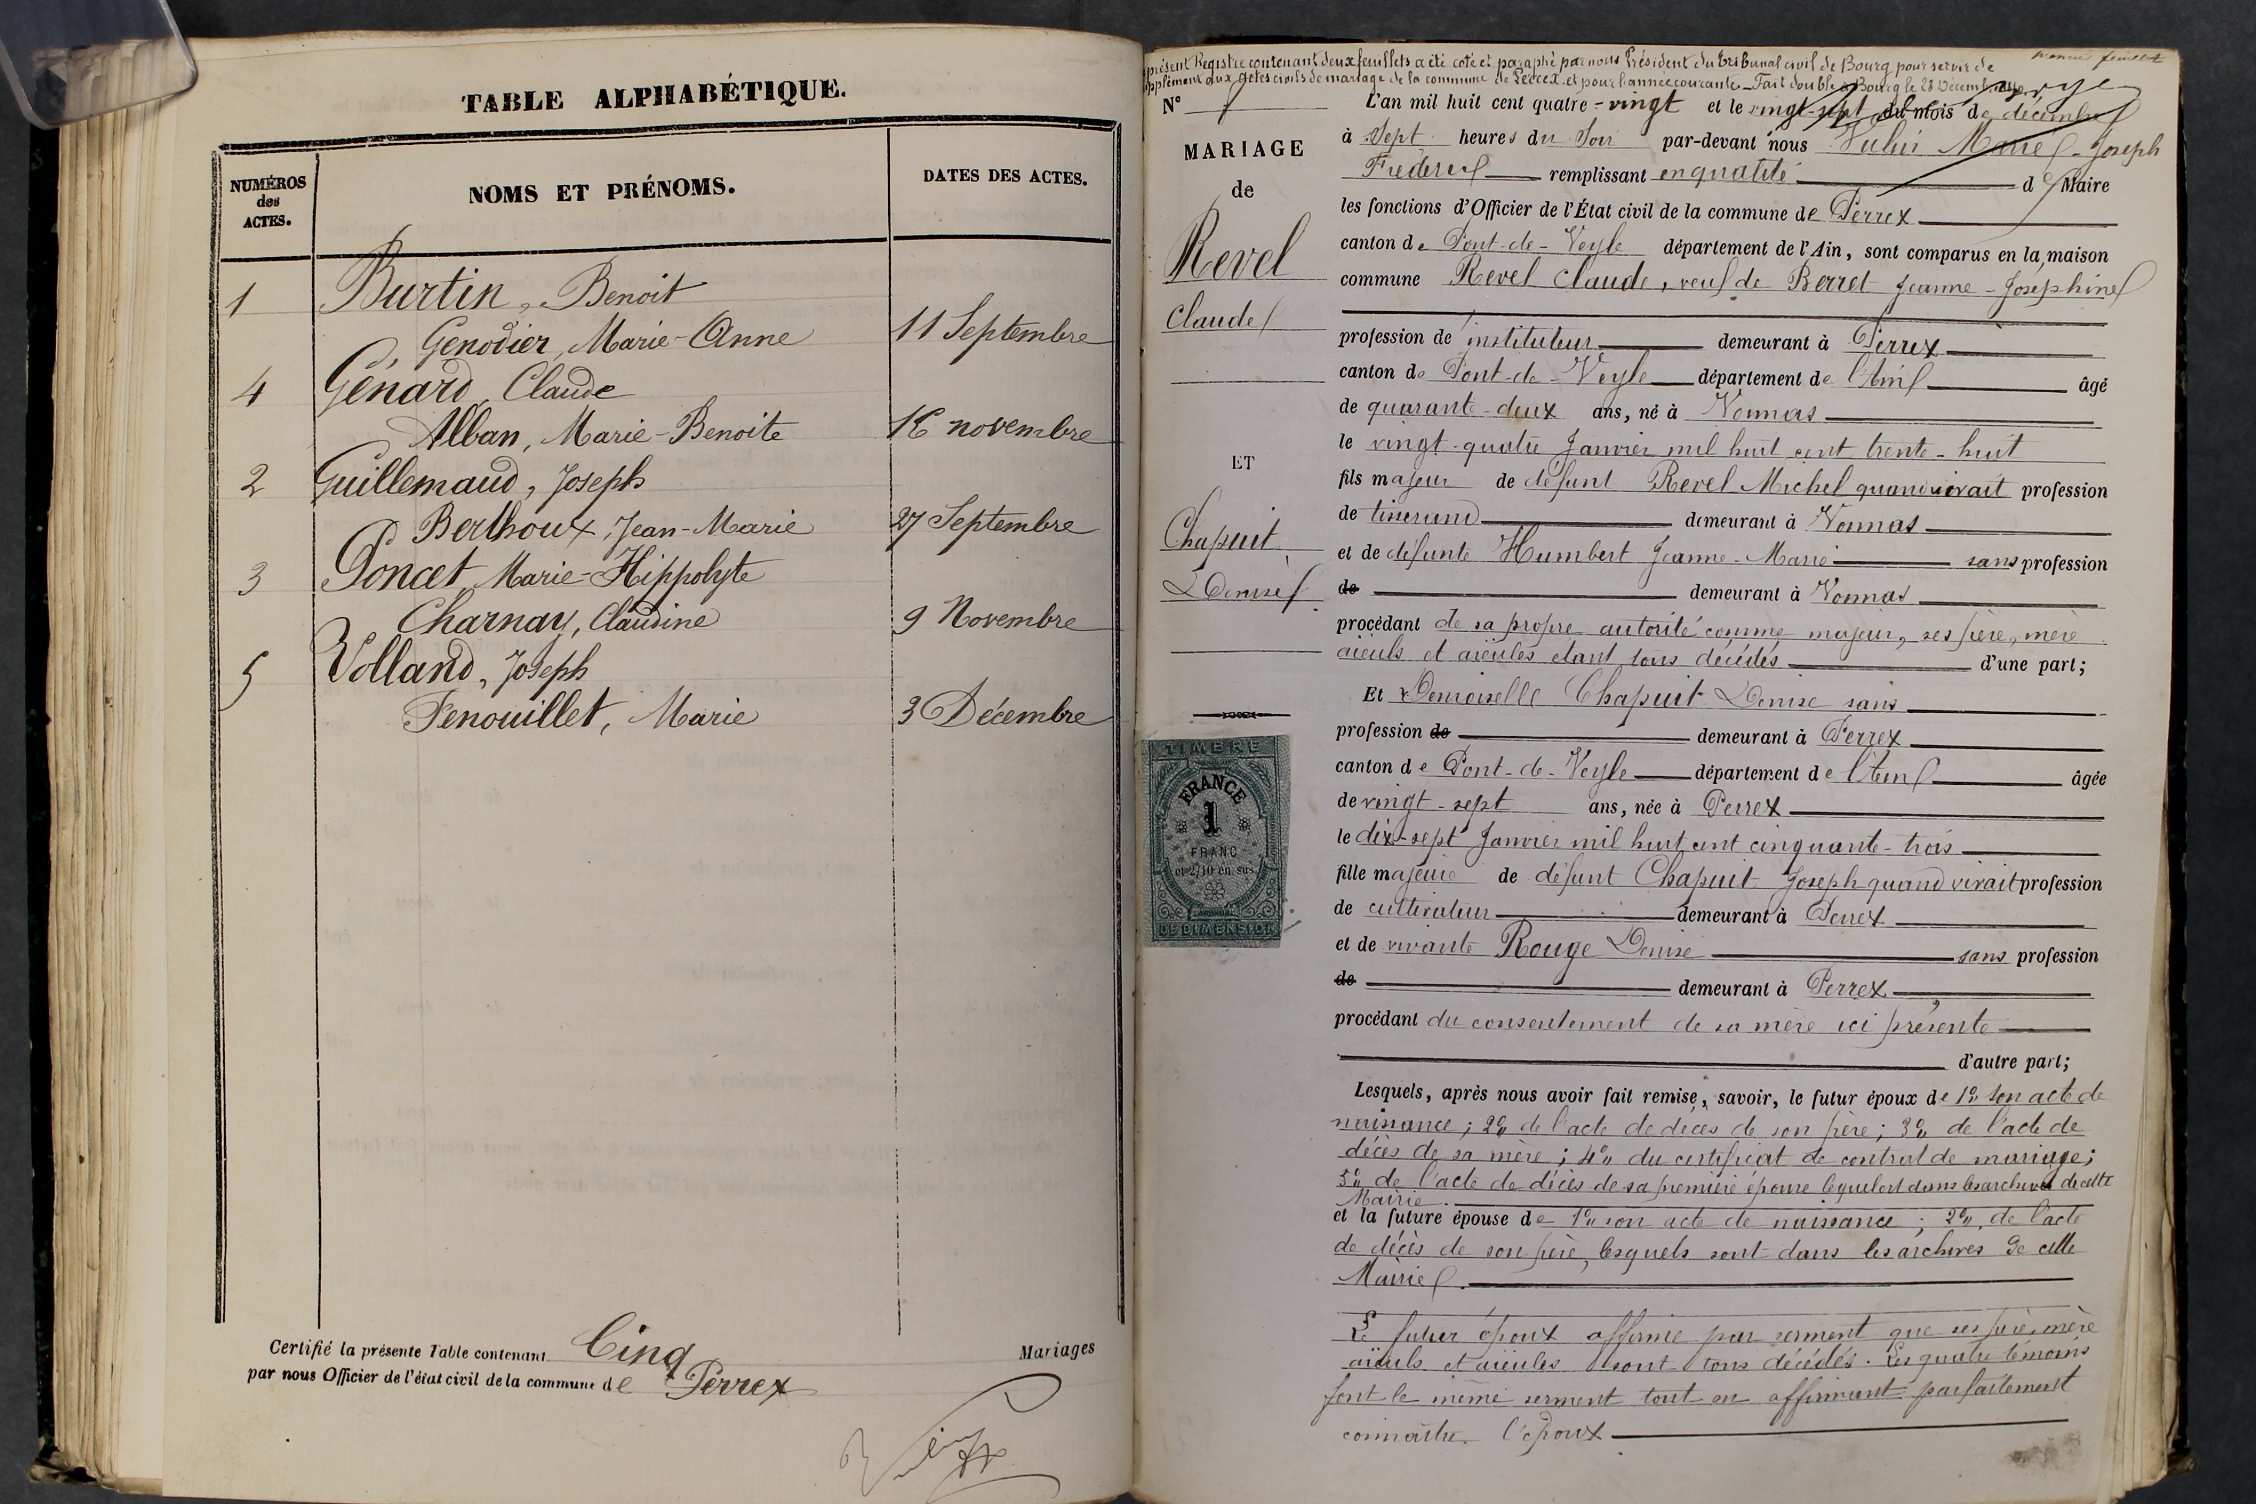 TABLE ALPHABÉTIQUE.
NUMÉROS des ACTES.
NOMS ET PRÉNOMS.
DATES DES ACTES.
1 Burtin, Benoit
Genodier, Marie-Anne 11 Septembre
4 Génard, Claude
Alban, Marie-Benoite 16 novembre
2 Guillemaud, Joseph
Berthoux, Jean-Marie 27 Septembre
3 Poncet, Marie-Hippolyte
Charnay, Claudine 9 Novembre
5 Volland, Joseph
Fenouillet, Marie 3 Décembre
Certifié la présente Table contenant Cinq Mariages
par nous Officier de l'état civil de la commune de Perrex
présent Registre contenant deux feuillets a été coté et paraphé par nous Président du tribunal civil de Bourg pour servir de
supplément aux actes civils de mariage de la commune de Perrex et pour l'année courante. Fait double à Bourg le 28 Décembre
feuillet
N°
MARIAGE
de
Revel
Claude
ET
Chapuit
Denise
TIMBRE
FRANCE
1
FRANC
et 2/10 en sus
DE DIMENSION
L'an mil huit cent quatre-vingt et le vingt-sept du mois de décembre
à Sept heures du Soir par-devant nous Vulin Marie-Joseph
Frédéric remplissant en qualité de Maire
les fonctions d'Officier de l'État civil de la commune de Perrex
canton de Pont-de-Veyle département de l'Ain, sont comparus en la maison
commune Revel Claude, veuf de Berret Jeanne-Joséphine
profession de instituteur demeurant à Perrex
canton de Pont-de-Veyle département de l'Ain âgé
de quarante-deux ans, né à Vonnas
le vingt-quatre Janvier mil huit cent trente-huit
fils majeur de défunt Revel Michel quand vivait profession
de tisserand demeurant à Vonnas
et de défunte Humbert Jeanne-Marie sans profession
de demeurant à Vonnas
procédant de sa propre autorité comme majeur, ses père, mère
aïeuls et aïeules étant tous décédés d'une part;
Et Demoiselle Chapuit Denise sans
profession de demeurant à Perrex
canton de Pont-de-Veyle département de l'Ain âgée
de vingt-sept ans, née à Perrex
le dix-sept Janvier mil huit cent cinquante-trois
fille majeure de défunt Chapuit Joseph quand vivait profession
de cultivateur demeurant à Perrex
et de vivante Rouge Denise sans profession
de demeurant à Perrex
procédant du consentement de sa mère ici présente
d'autre part;
Lesquels, après nous avoir fait remise, savoir, le futur époux de 1° son acte de
naissance; 2° de l'acte de décès de son père; 3° de l'acte de
décès de sa mère; 4° du certificat de contrat de mariage;
5° de l'acte de décès de sa première épouse lequel est dans les archives de cette
Mairie
et la future épouse de 1° son acte de naissance; 2° de l'acte
de décès de son père, lesquels sont dans les archives de cette
Mairie.
Le futur époux affirme par serment que ses père, mère
aïeuls et aïeules sont tous décédés. Les quatre témoins
font le même serment tout en affirmant parfaitement
connaître l'époux